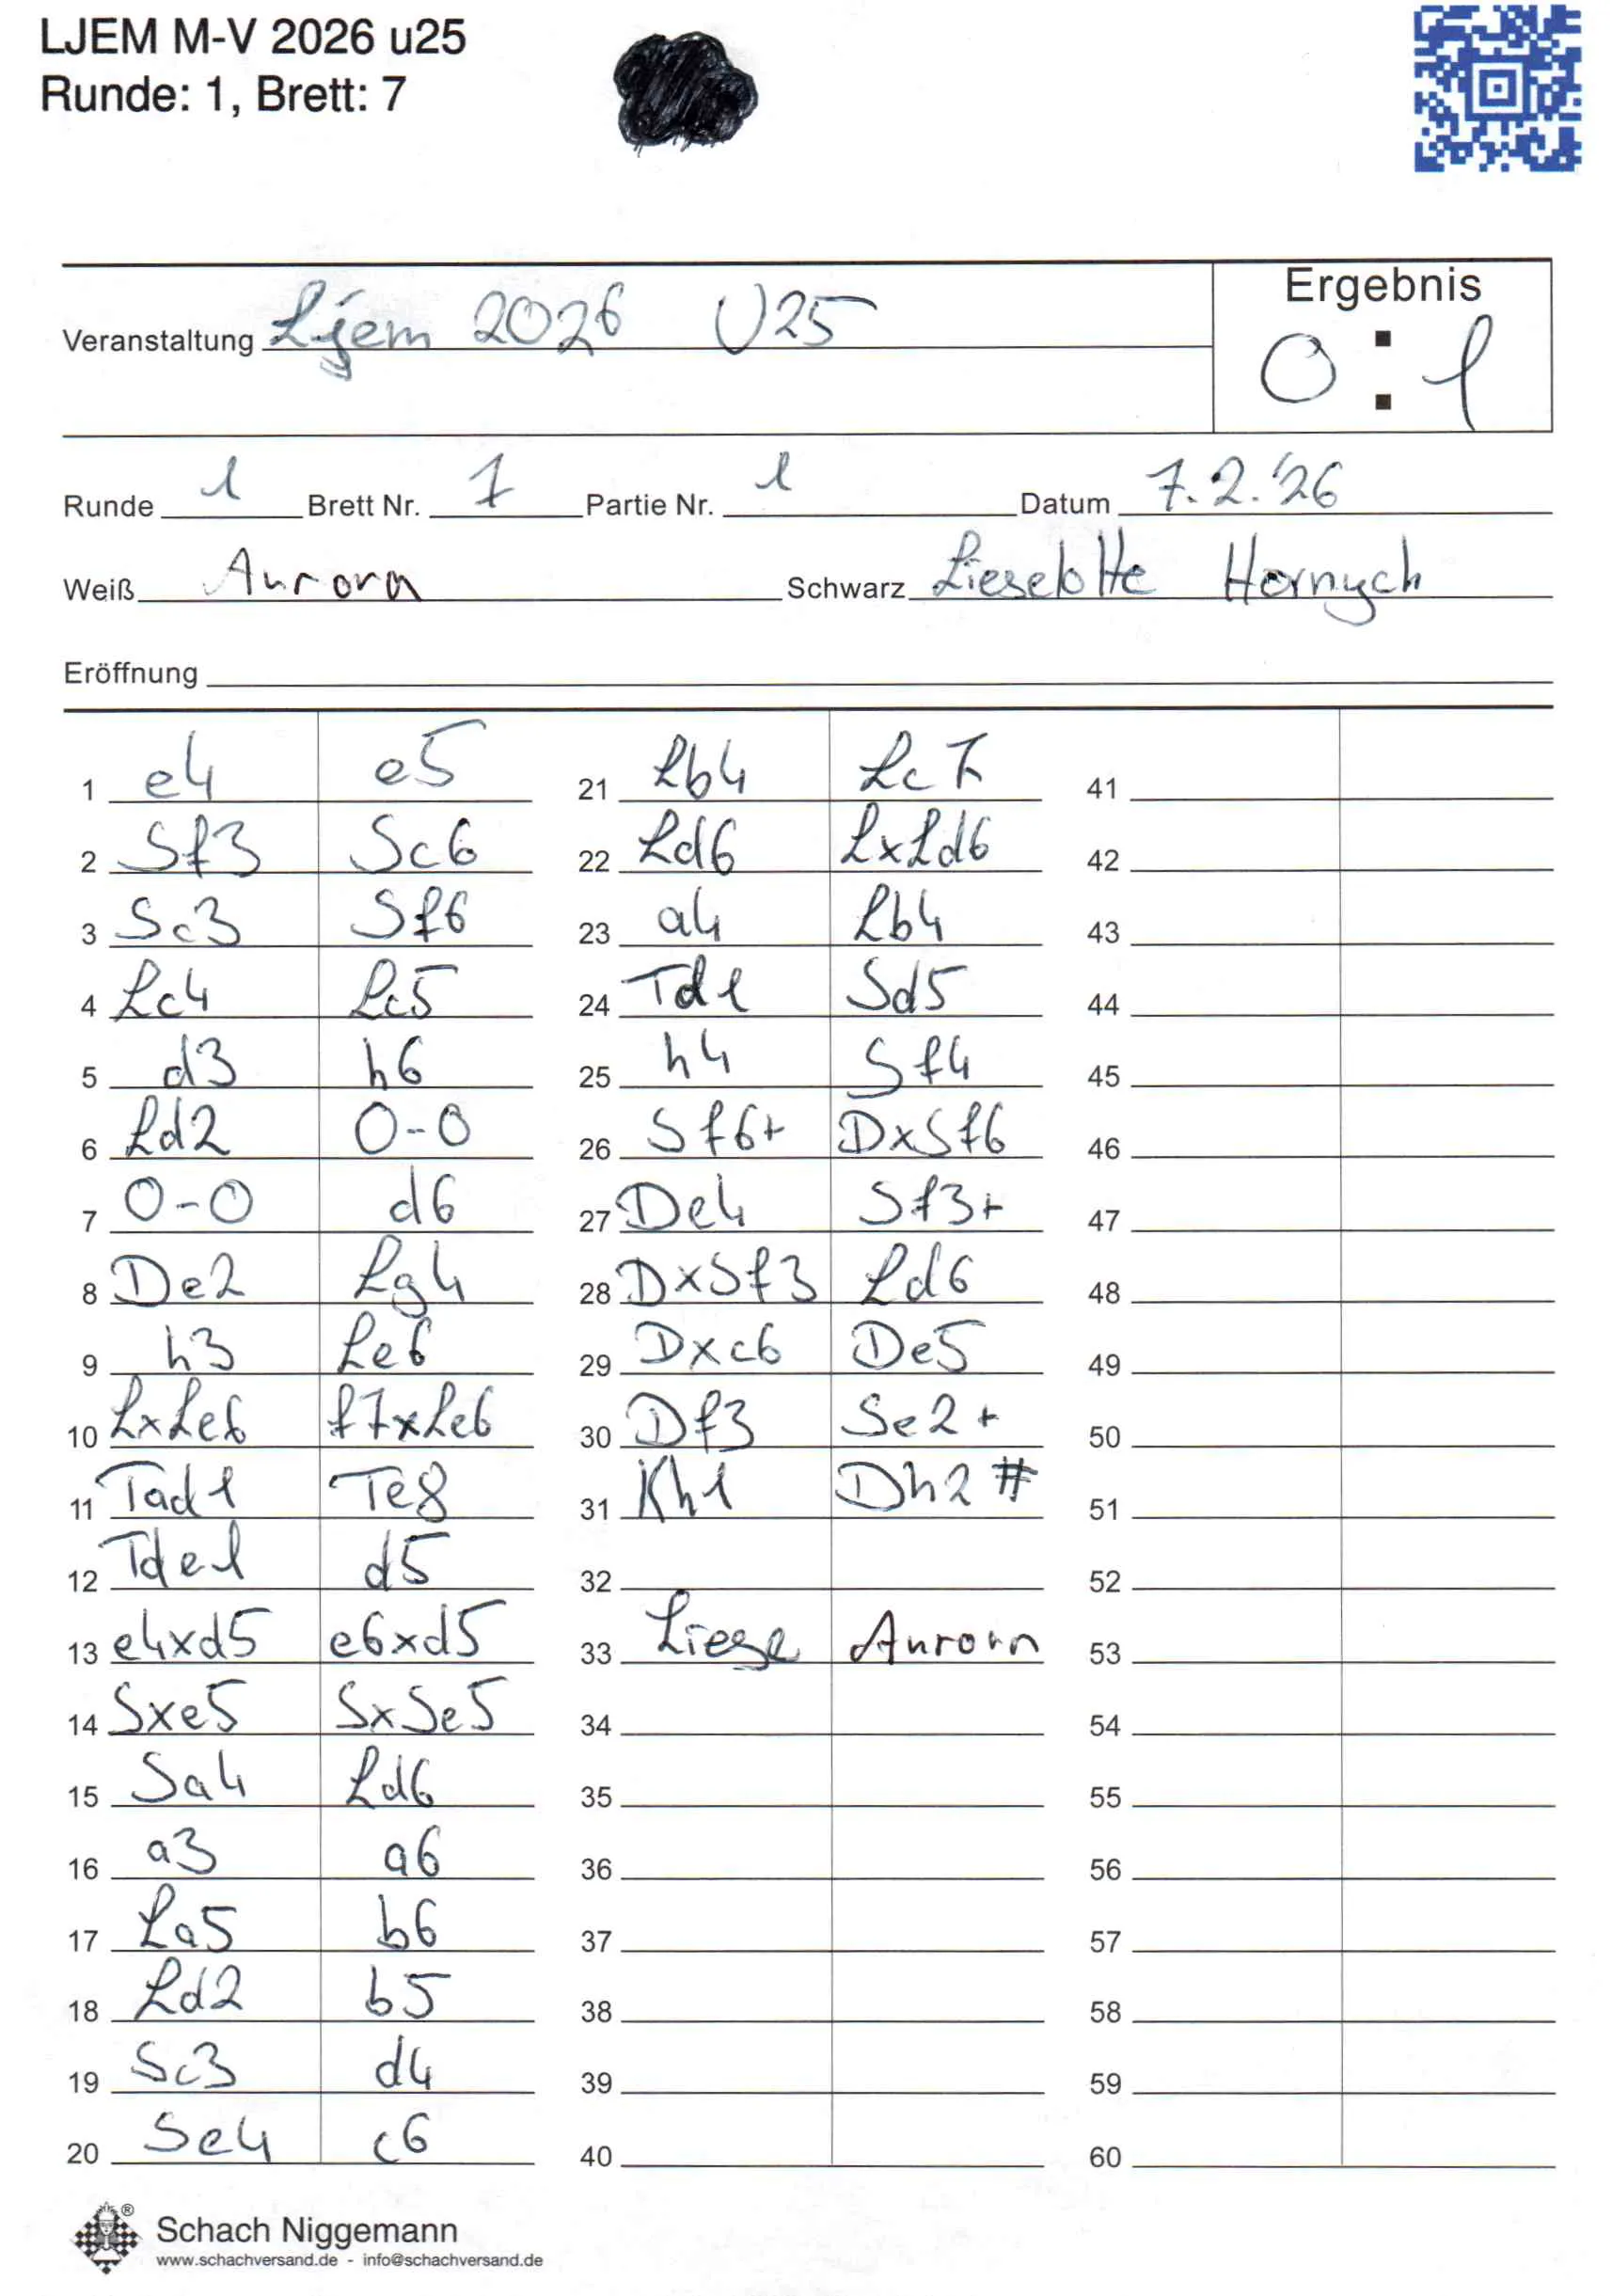 LJEM M-V 2026 u25
Runde: 1, Brett: 7
Ergebnis
Veranstaltung Ljem 2026 U25
0 : 1
Runde 1 Brett Nr. 7 Partie Nr. 1 Datum 7.2.'26
Weiß Aurora Schwarz Lieselotte Hornych
Eröffnung
1 e4 e5 21 Lb4 Lc7 41
2 Sf3 Sc6 22 Ld6 LxLd6 42
3 Sc3 Sf6 23 a4 Lb4 43
4 Lc4 Lc5 24 Td1 Sd5 44
5 d3 h6 25 h4 Sf4 45
6 Ld2 0-0 26 Sf6+ DxSf6 46
7 0-0 d6 27 De4 Sf3+ 47
8 De2 Lg4 28 DxSf3 Ld6 48
9 h3 Le6 29 Dxc6 De5 49
10 LxLe6 f7xLe6 30 Df3 Se2+ 50
11 Tad1 Te8 31 Kh1 Dh2# 51
12 Tde1 d5 32 52
13 e4xd5 e6xd5 33 Liese Aurora 53
14 Sxe5 SxSe5 34 54
15 Sa4 Ld6 35 55
16 a3 a6 36 56
17 La5 b6 37 57
18 Ld2 b5 38 58
19 Sc3 d4 39 59
20 Se4 c6 40 60
Schach Niggemann
www.schachversand.de - info@schachversand.de